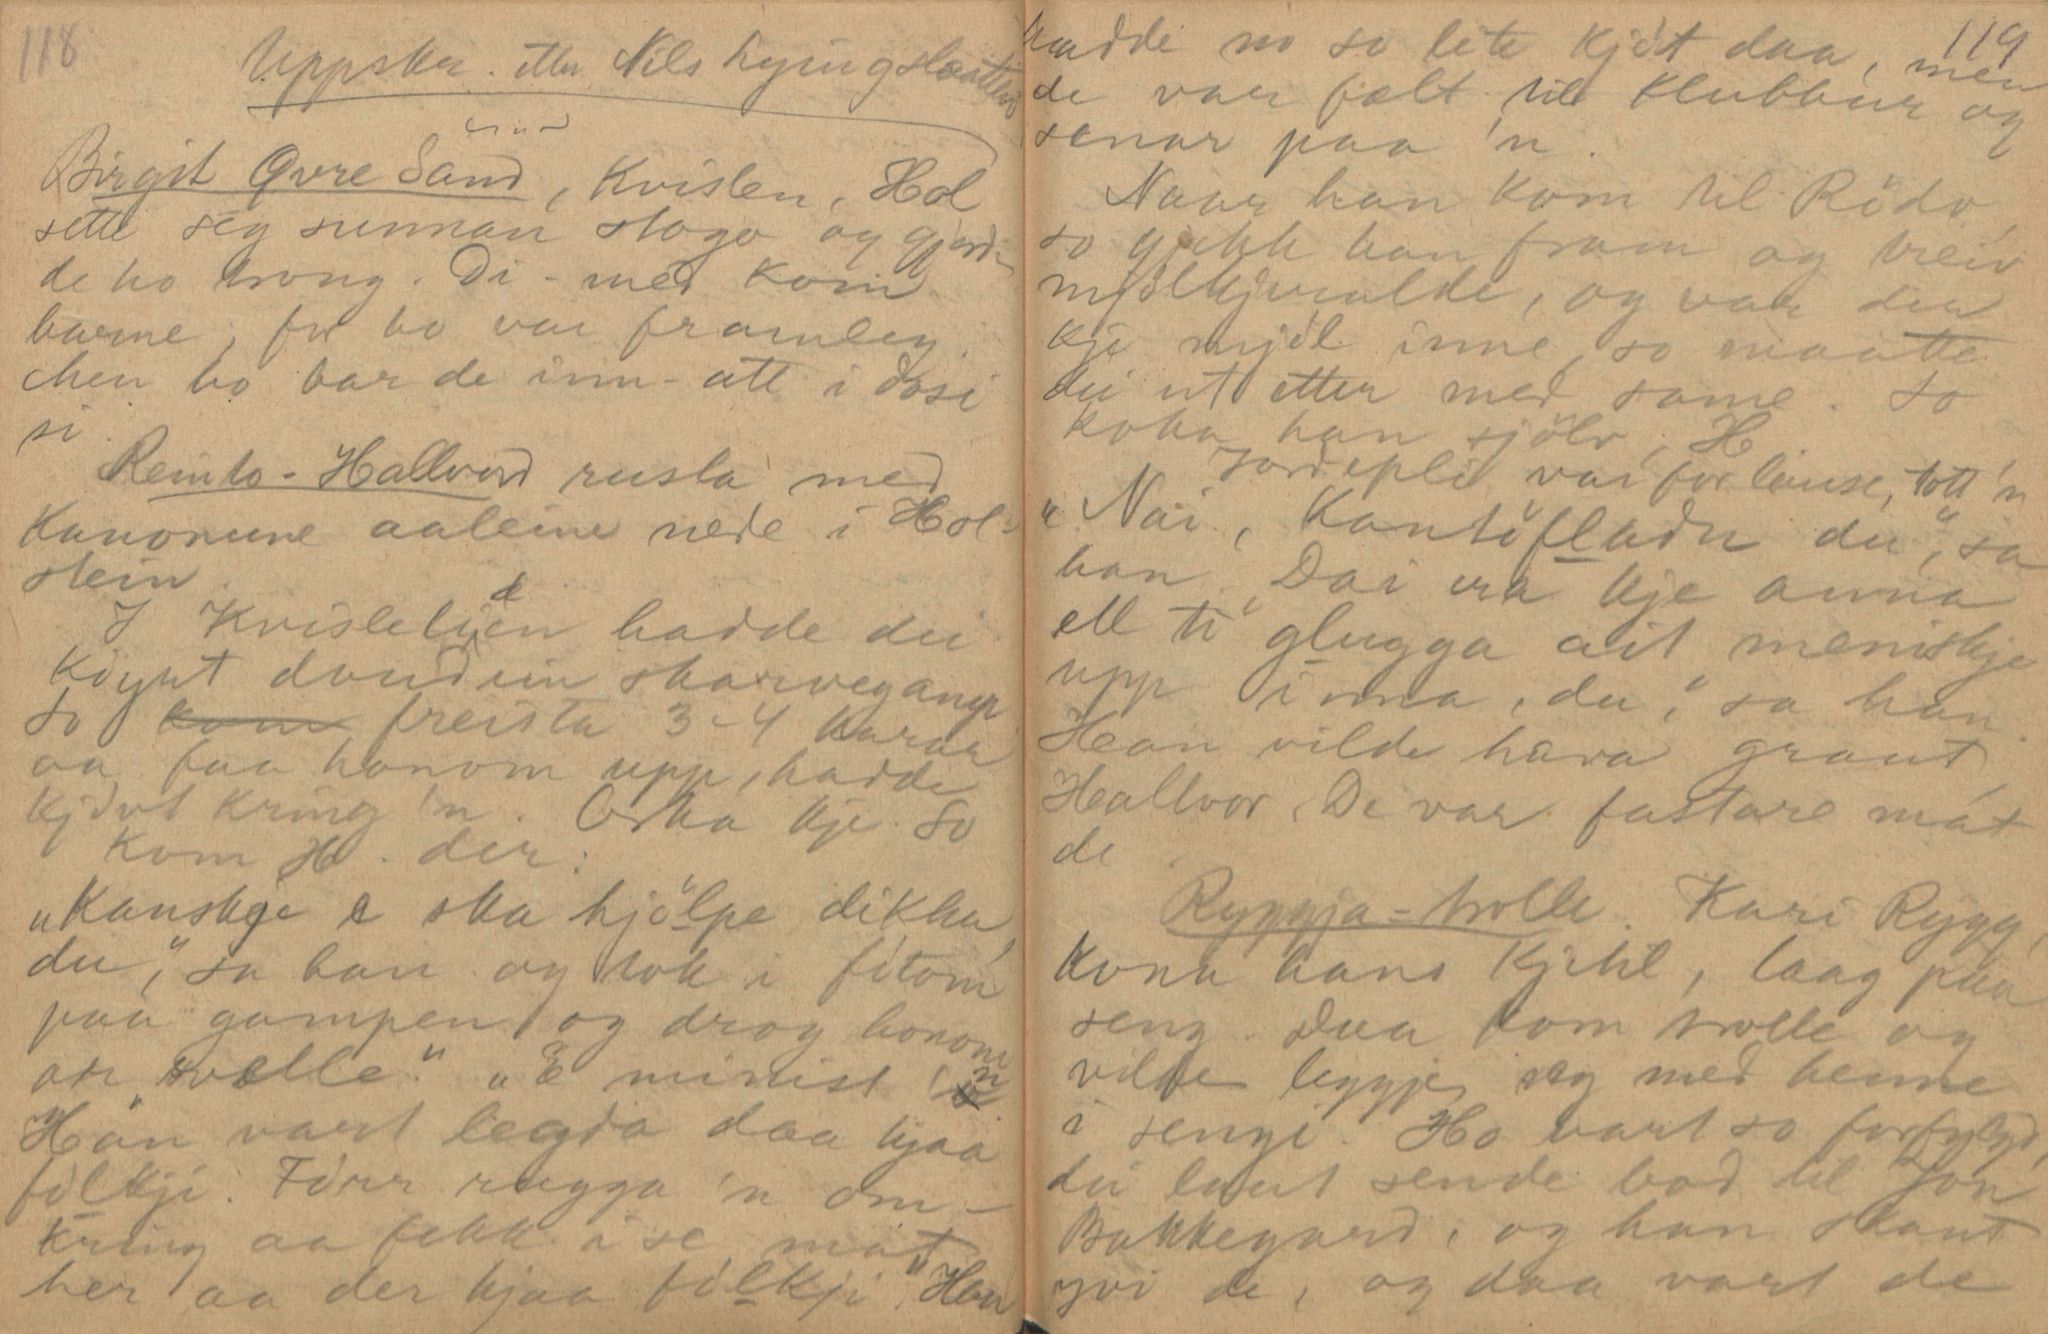 118
Uppskr. etter Nils Lyingslaatten
Birgit Øvre Sand, Kvislen, Hol
sette seg sunnan stogo og gjord-
de ho trong. Di-med kom
barne, for ho var framleg.
Men ho bar de inn-att i dosi
si.
Reinto-Hallvord rusla med
Kanonune aaleine nede i Hol-
stein.
I Kvisleliën hadde dei
köyrt doud ein skarvegamp
So kom freista 3-4 karar
aa faa honom upp, hadde
kjövt kring 'n. Orka kje. So
kom H. der:
„Kanskje e ska hjölpe dikka,
du," sa han og tok i fötom
paa gampen og drog honom
or svelle." „E minist 'n
Han vart legda daa hjaa
fölkji. Förr rugga 'n om-
kring aa fekk i se mat
her aa der hjaa fölkji". Han
119
hadde no so lite kjöt daa, men
de var fælt til klubbur og
senar paa 'n.
Naar han kom til Rödo,
so gjekk han fram og treiv
mjölkjeralde, og var der
kje mjöl inne, so maatte
dei ut etter med same. So
koka han sjölv, H.
Jordepli var for lause, tott 'n
„Nai, Kantöfladn du", sa
han „Dai era kje anna
ell ti glugga ait meniskje
upp innna, du", sa han.
Han vilde hava graut,
Hallvor. De var fastare mat
de.
Ryggja-trolle. Kari Rygg,
kona hans Kjetil, laag paa
seng. Daa kom trolle og
vilde leggje seg med henne
i sengi. Ho vart so forfylgd,
dei laut sende bod til Jon
Bakkegard, og han skaut
yvi de, og daa vart de